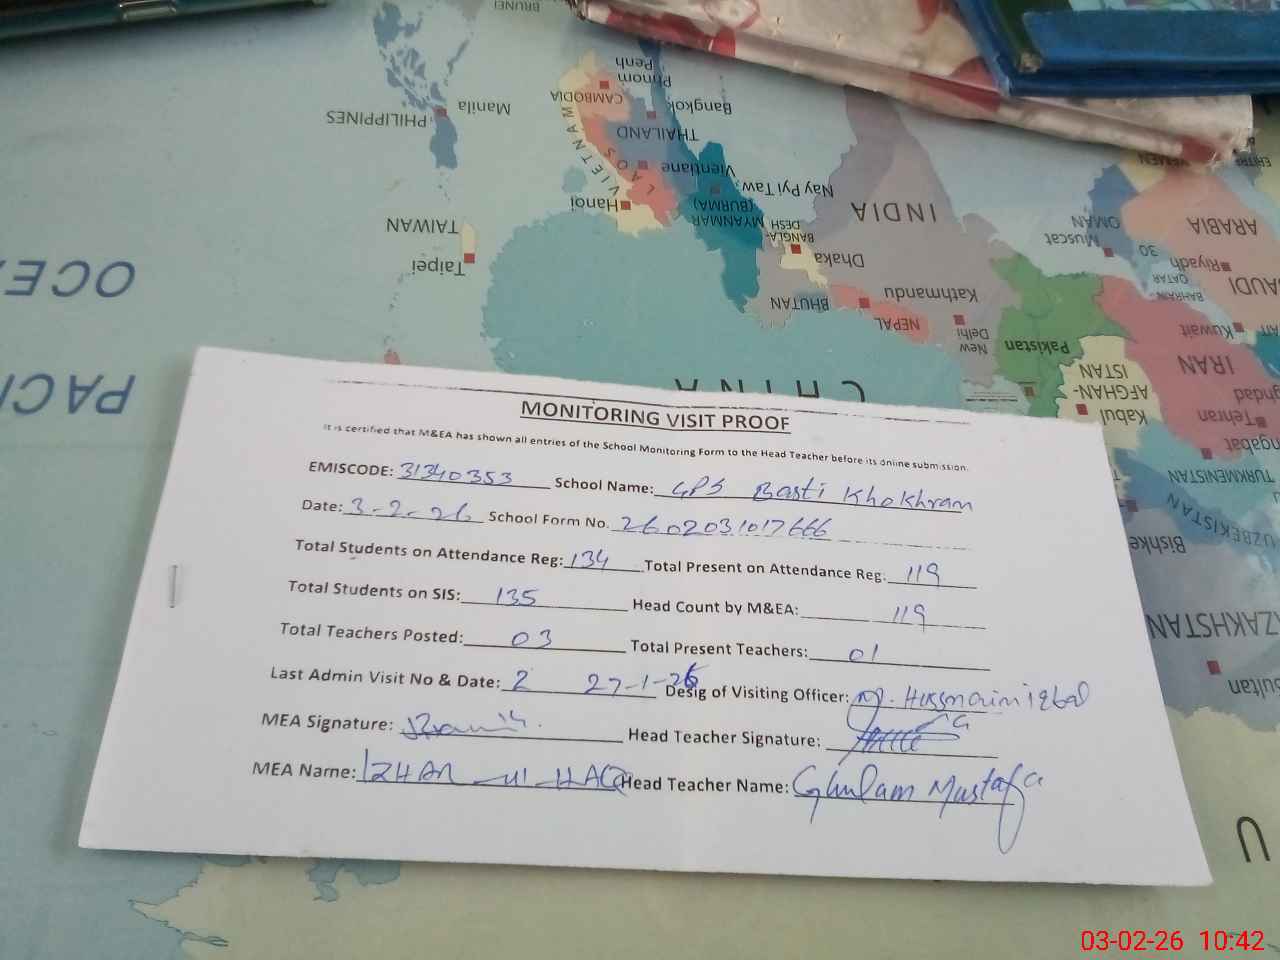 MONITORING VISIT PROOF
It is certified that M&EA has shown all entries of the School Monitoring Form to the Head Teacher before its online submission.
EMISCODE: 31340353 School Name: GPS Basti Khokhram
Date: 3-2-26 School Form No. 2602031017666
Total Students on Attendance Reg: 134 Total Present on Attendance Reg: 119
Total Students on SIS: 135 Head Count by M&EA: 119
Total Teachers Posted: 03 Total Present Teachers: 01
Last Admin Visit No & Date: 2 27-1-26 Desig of Visiting Officer: M. Hassnain iqbal
MEA Signature: Head Teacher Signature:
MEA Name: IZHAR ul HAQ Head Teacher Name: Ghulam Mustafa
BRUNEI
PHILIPPINES
Manila
Phnom
Penh
CAMBODIA
Bangkok
THAILAND
VIETNAM
LAOS
Vientiane
Hanoi
Nay Pyi Taw
MYANMAR
(BURMA)
BANGLA-
DESH
Dhaka
INDIA
TAIWAN
Taipei
BHUTAN
Kathmandu
NEPAL
New
Delhi
Pakistan
OMAN
Muscat
YEMEN
30
Riyadh
QATAR
BAHRAIN
SAUDI
ARABIA
Kuwait
IRAN
Tehran
AFGHAN-
ISTAN
Kabul
TURKMENISTAN
UZBEKISTAN
Bishke
AZAKHSTAN
CHINA
PACI
OCE
03-02-26 10:42